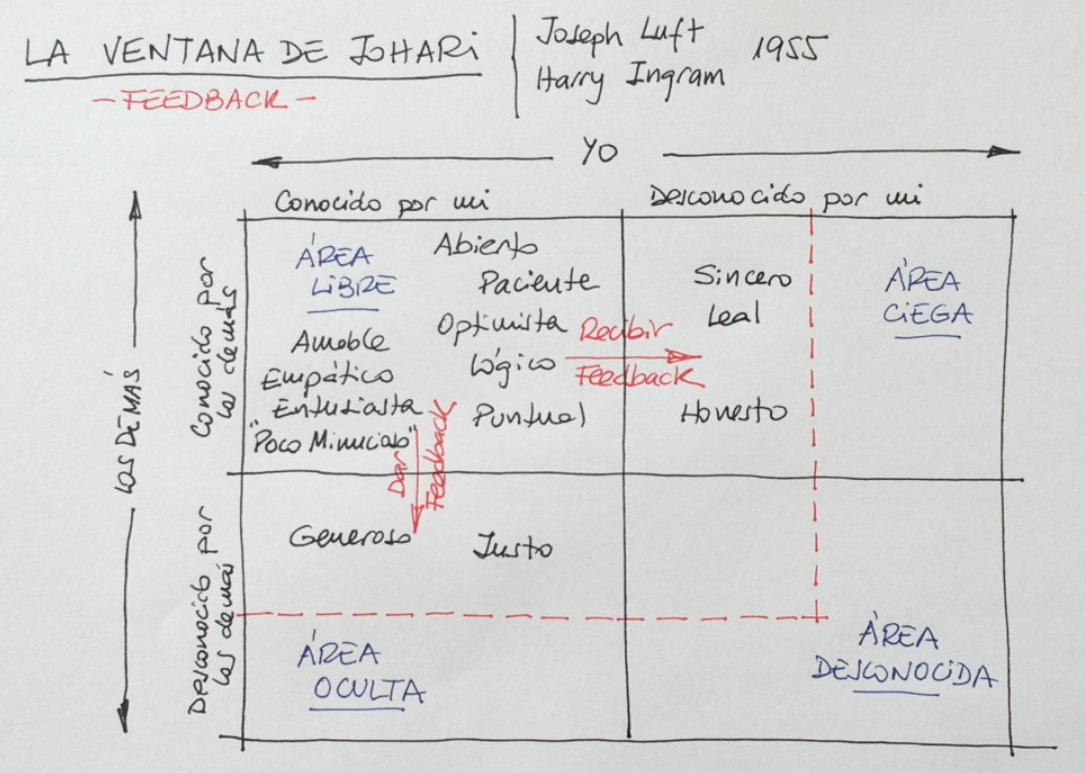 LA VENTANA DE JOHARI
- FEEDBACK -
Joseph Luft
Harry Ingram
1955
YO
LOS DEMÁS
Conocido por mi
Desconocido por mi
Conocido por
los demás
Desconocido por
los demás
ÁREA
LIBRE
Abierto
Paciente
Optimista
Lógico
Puntual
Amable
Empático
Entusiasta
"Poco Minucioso"
Recibir
Feedback
Dar
Feedback
Sincero
Leal
Honesto
ÁREA
CIEGA
Generoso
Justo
ÁREA
OCULTA
ÁREA
DESCONOCIDA